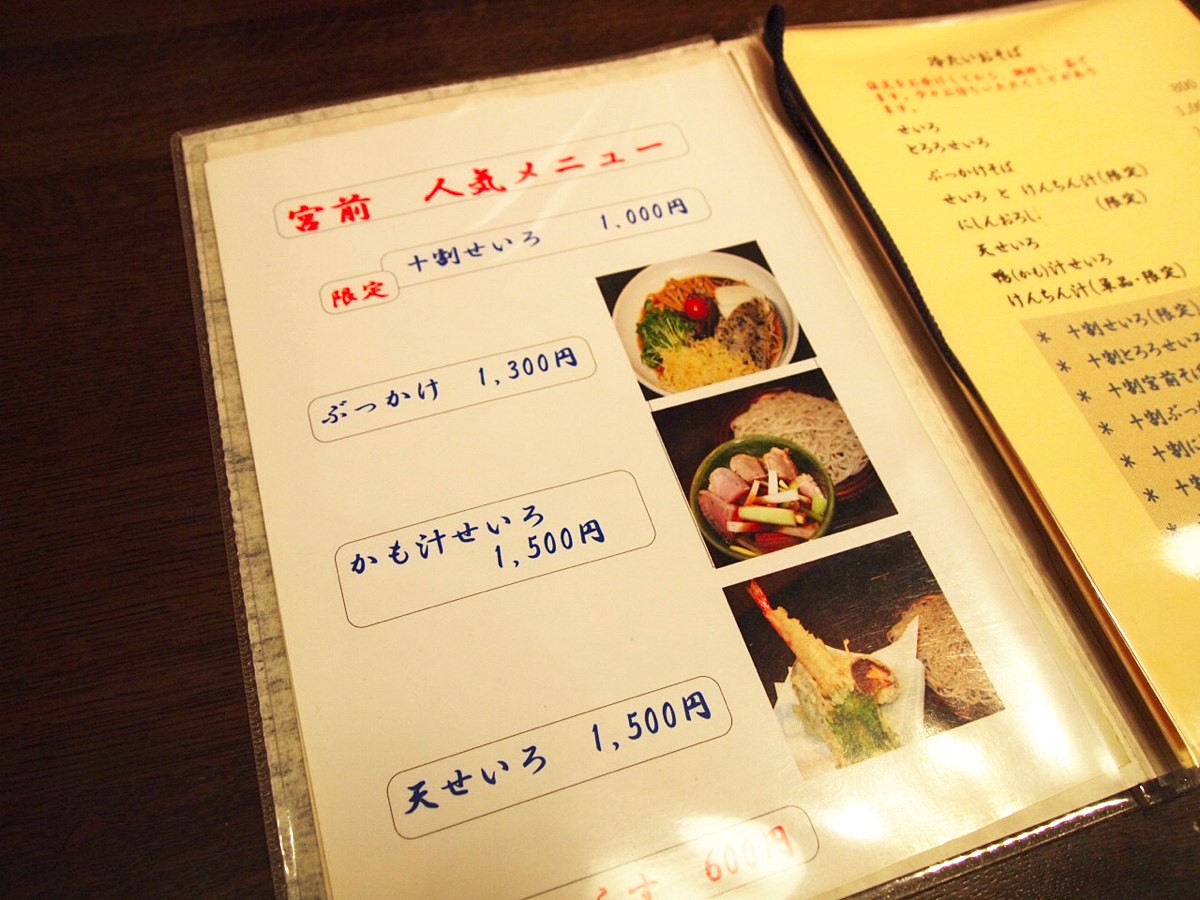 宮前 人気メニュー
十割せいろ 1,000円
限定
ぶっかけ 1,300円
かも汁せいろ
1,500円
天せいろ 1,500円
600円
冷たいおそば
せいろ
とろろせいろ
ぶっかけそば
せいろ と けんちん汁(限定)
にしんおろし (限定)
天せいろ
鴨(かも)汁せいろ
けんちん汁(単品・限定)
* 十割せいろ(限定)
* 十割とろろせいろ
* 十割宮前そ
* 十割ぶっ
* 十割に
* 十